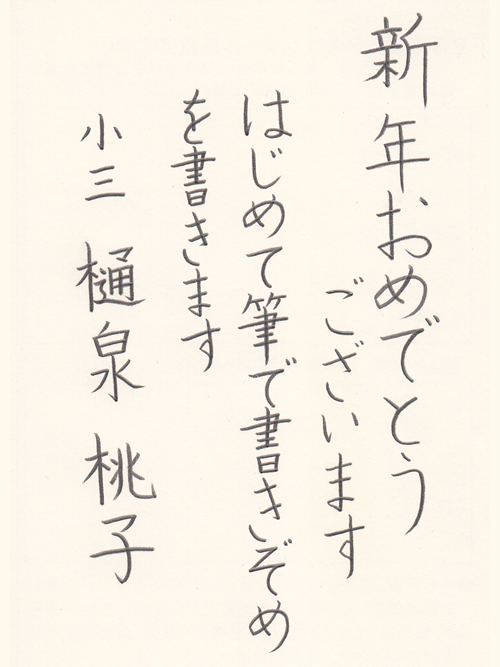 新年おめでとう
ございます
はじめて筆で書きぞめ
を書きます
小三 樋泉 桃子